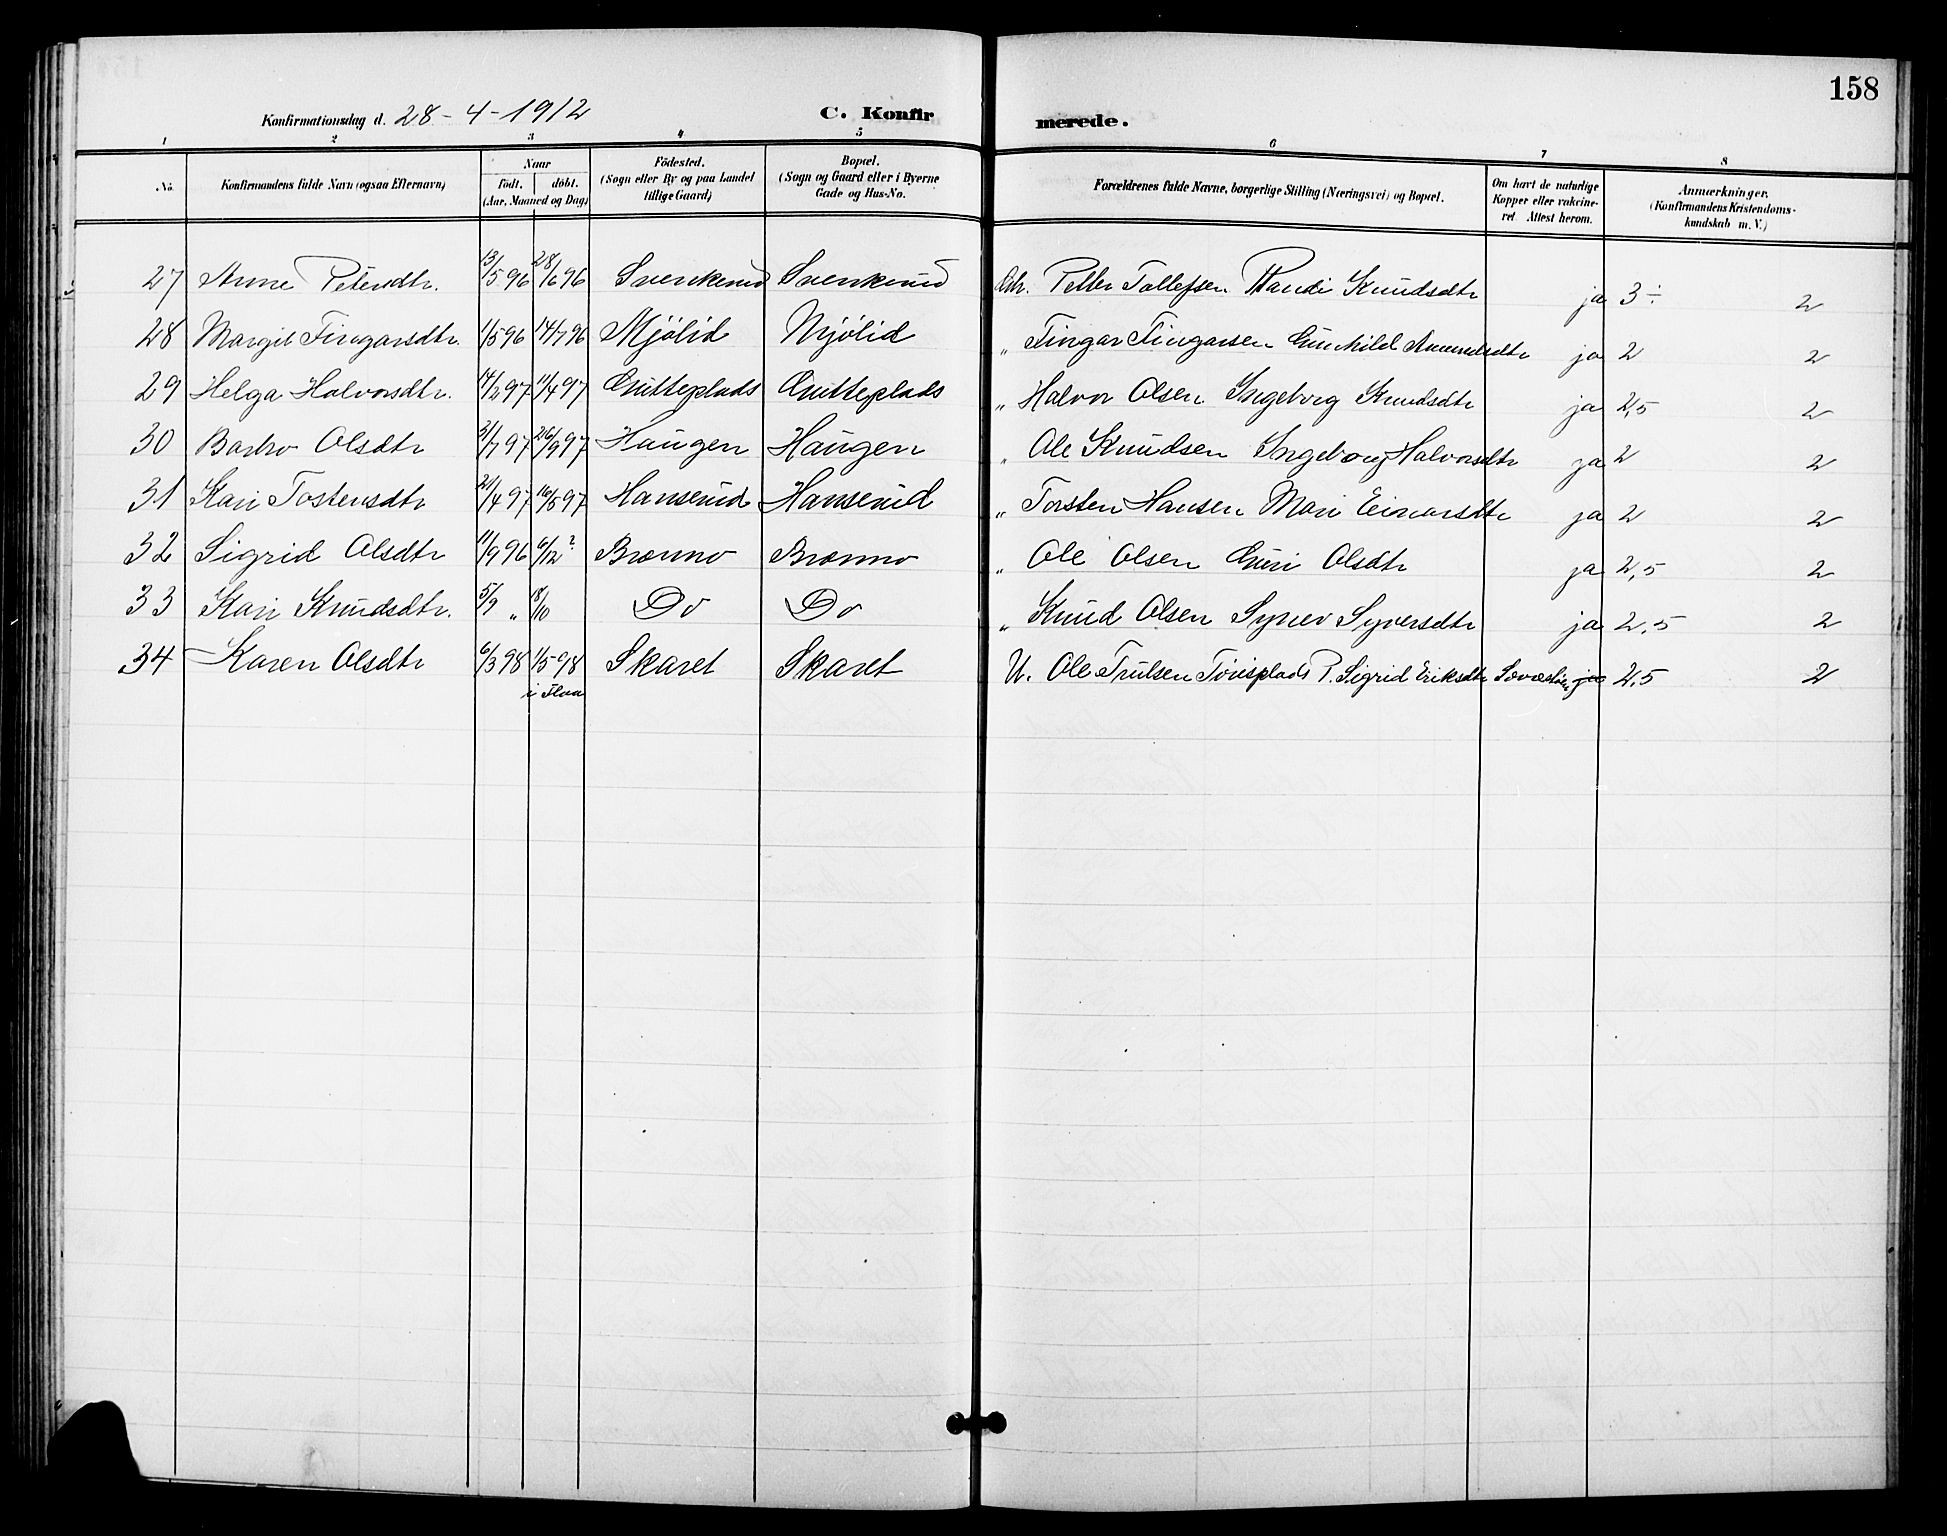 158
Konfirmationsdag d. 28-4-1912 C. Konfirmerede.
1 2 3 4 5 6 7 8
No. Konfirmandens fulde Navn (ogsaa Efternavn) Naar født. døbt. (Aar, Maaned og Dag) Födested. (Sogn eller By og paa Landet tillige Gaard) Bopæl. (Sogn og Gaard eller i Byerne Gade og Hus-No. Forældrenes fulde Navne, borgerlige Stilling (Næringsvei) og Bopæl. Om havt de naturlige Kopper eller vakcineret Attest herom. Anmærkninger. (Konfirmandens Kristendomskundskab m. V.)
27 Anne Petersdtr. 13/5 96 28/6 96 Svenkerud Svenkerud Petter Tollefsen Randi Knudsdtr ja 3÷ 2
28 Margit Fingarsdtr. 1/5 96 14/7 96 Mjölid Mjölid " Fingar Fingarsen Gunhild Amundsdtr ja 2 2
29 Helga Halvorsdtr. 14/2 97 11/4 97 Gutteplads Gutteplads " Halvor Olsen Ingeborg Knudsdtr ja 2,5 2
30 Barbro Olsdtr 31/7 97 26/9 97 Haugen Haugen " Ole Knudsen Ingeborg Halvorsdtr ja 2 2
31 Kari Tostensdtr 21/4 97 16/5 97 Hanserud Hanserud " Torsten Hansen Mari Einarsdtr ja 2 2
32 Sigrid Olsdtr 11/9 96 6/12 ? Bromno Bromno " Ole Olsen Guri Olsdtr ja 2,5 2
33 Kari Knudsdtr. 5/9 " 18/10 Do Do " Knud Olsen Synev Syversdtr ja 2,5 2
34 Karen Olsdtr 6/3 98 1/5 98 Skaret Skaret U. Ole Trulsen P. Sigrid Eriksdtr ja 2,5 2
i Flaa